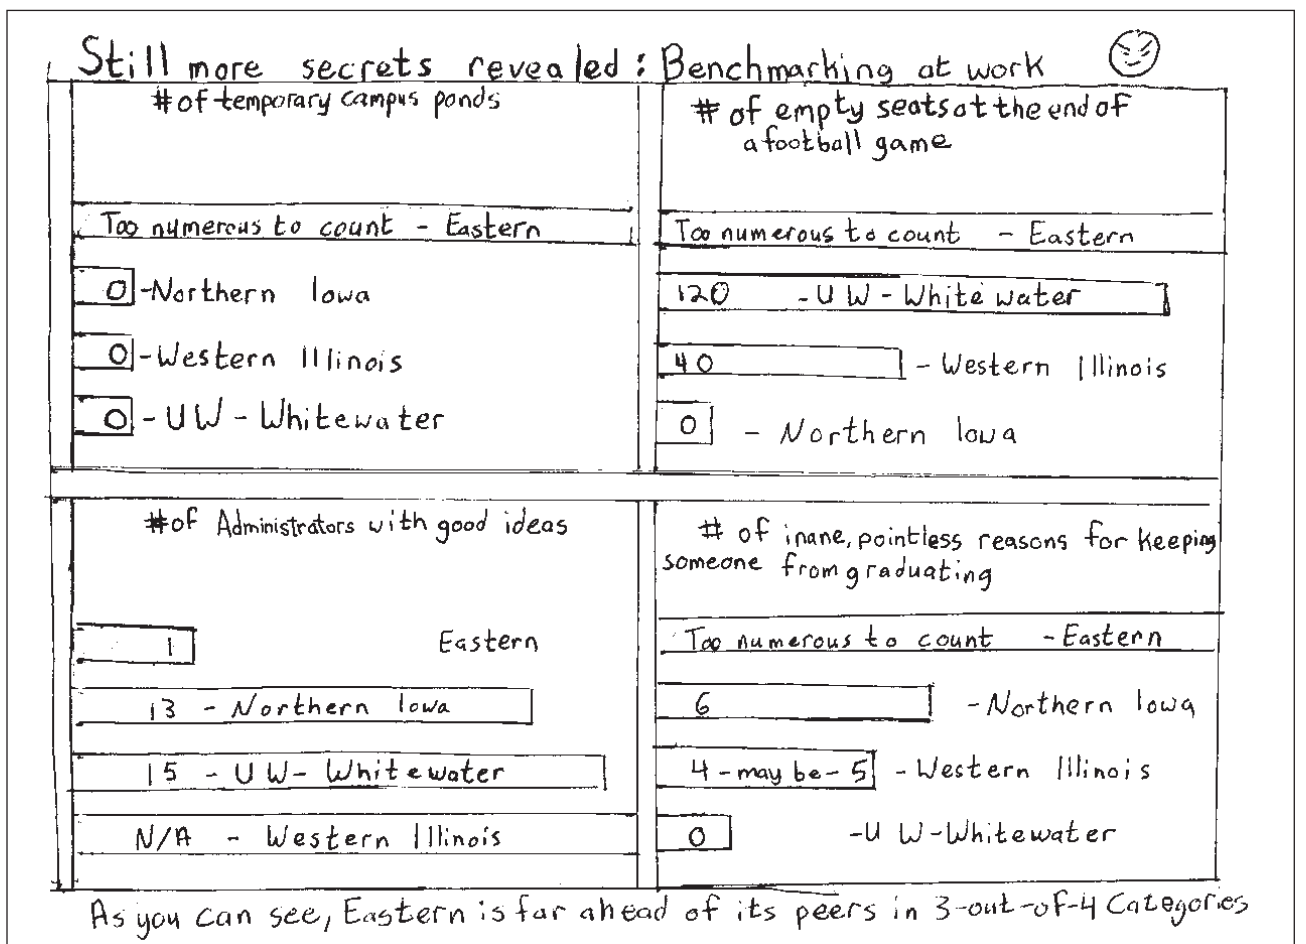 Still more secrets revealed: Benchmarking at work
# of temporary campus ponds
Too numerous to count - Eastern
0 - Northern Iowa
0 - Western Illinois
0 - UW - Whitewater
# of empty seats at the end of
a football game
Too numerous to count - Eastern
120 - UW - Whitewater
40 - Western Illinois
0 - Northern Iowa
# of Administrators with good ideas
1 Eastern
13 - Northern Iowa
15 - UW - Whitewater
N/A - Western Illinois
# of inane, pointless reasons for keeping
someone from graduating
Too numerous to count - Eastern
6 - Northern Iowa
4 - maybe - 5 - Western Illinois
0 - UW - Whitewater
As you can see, Eastern is far ahead of its peers in 3-out-of-4 Categories